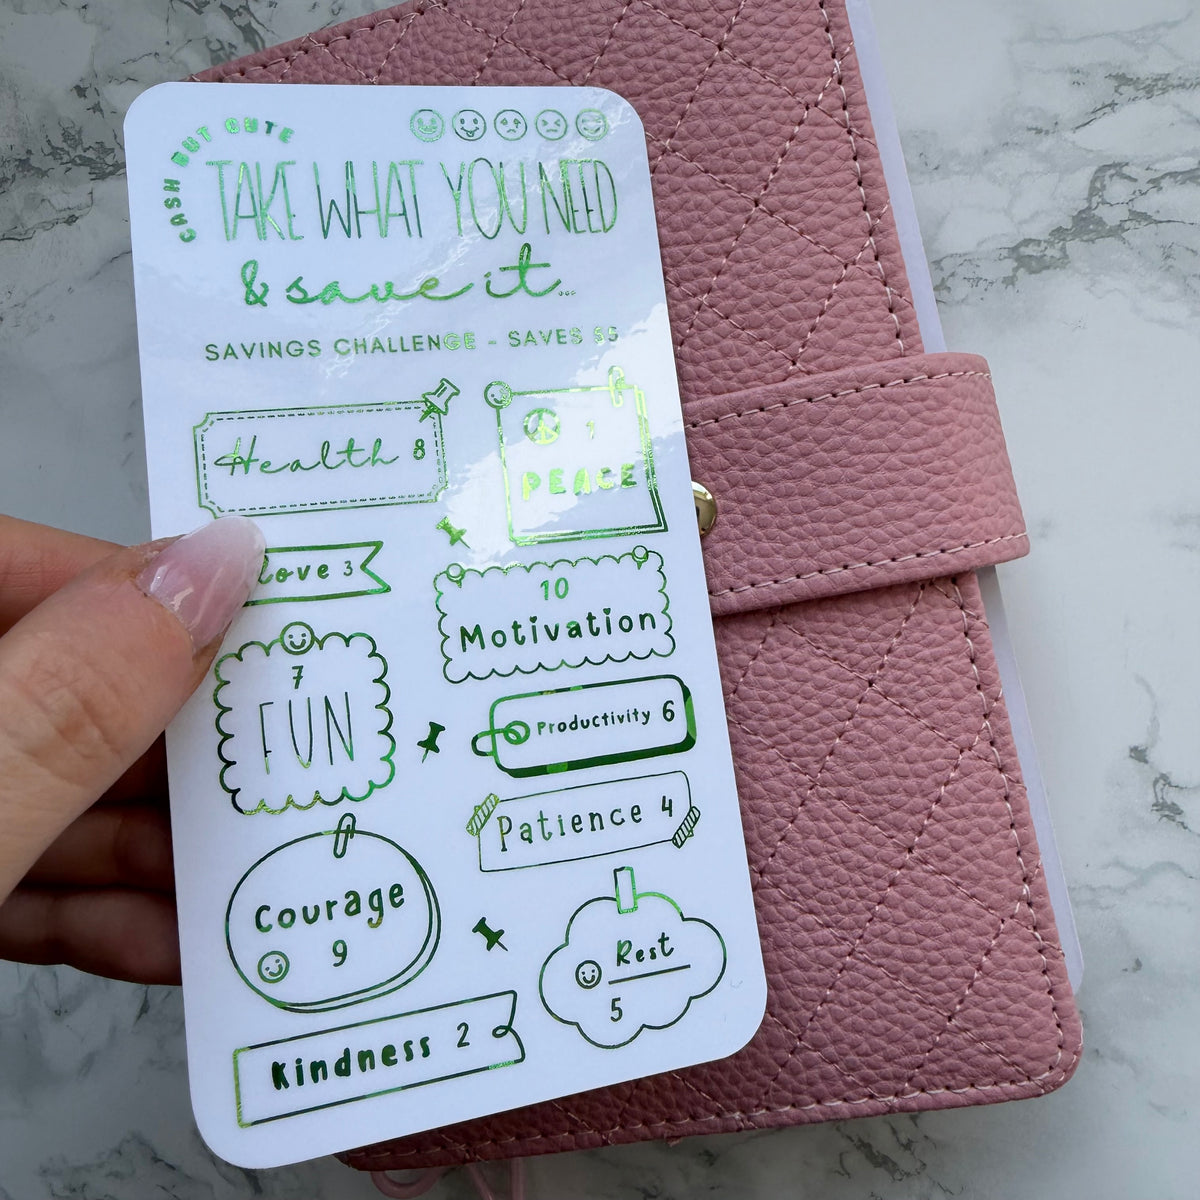 CASH BUT CUTE
TAKE WHAT YOU NEED
& save it...
SAVINGS CHALLENGE - SAVES 55
Health 8
1
PEACE
Love 3
10
Motivation
7
FUN
Productivity 6
Patience 4
Courage
9
Rest
5
Kindness 2